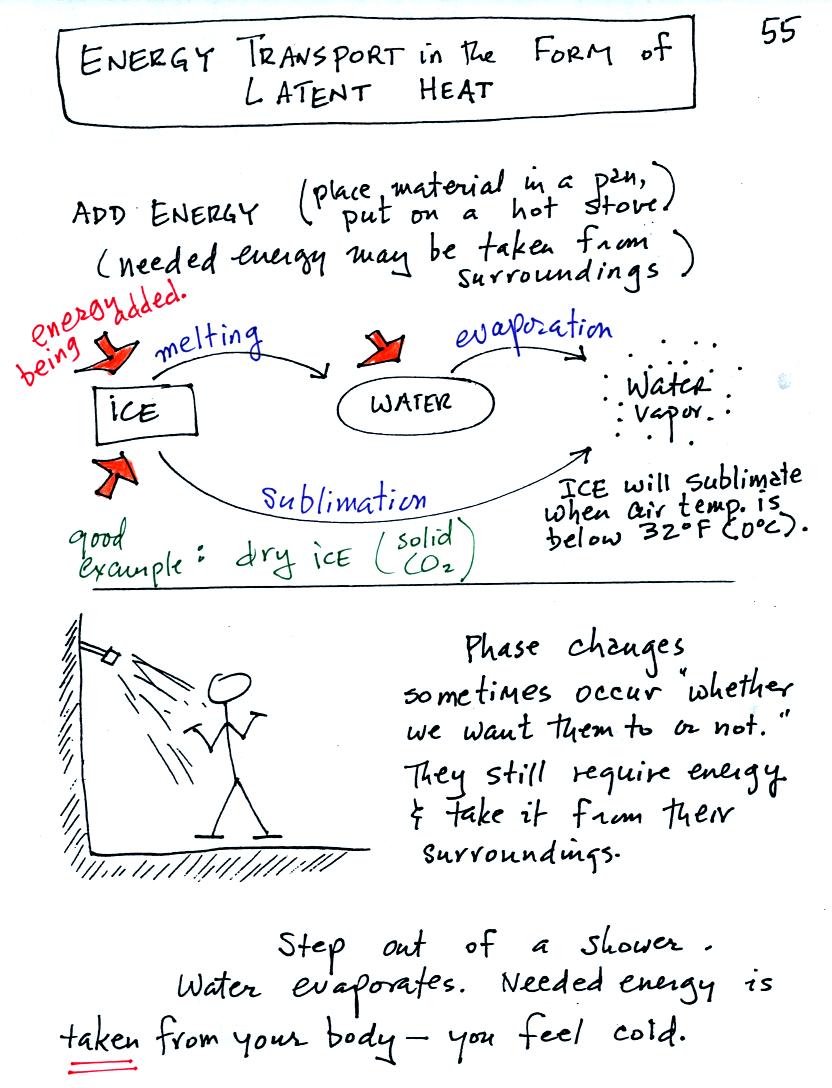 55
ENERGY TRANSPORT in the FORM of
LATENT HEAT
ADD ENERGY (place material in a pan,
put on a hot stove)
(needed energy may be taken from
surroundings)
energy added.
being
melting
evaporation
ICE
WATER
Water
vapor.
sublimation
ICE will sublimate
when air temp. is
below 32°F (0°C).
good
example: dry ICE (solid
CO2)
Phase changes
sometimes occur "whether
we want them to or not."
They still require energy
& take it from their
surroundings.
Step out of a shower.
Water evaporates. Needed energy is
taken from your body - you feel cold.